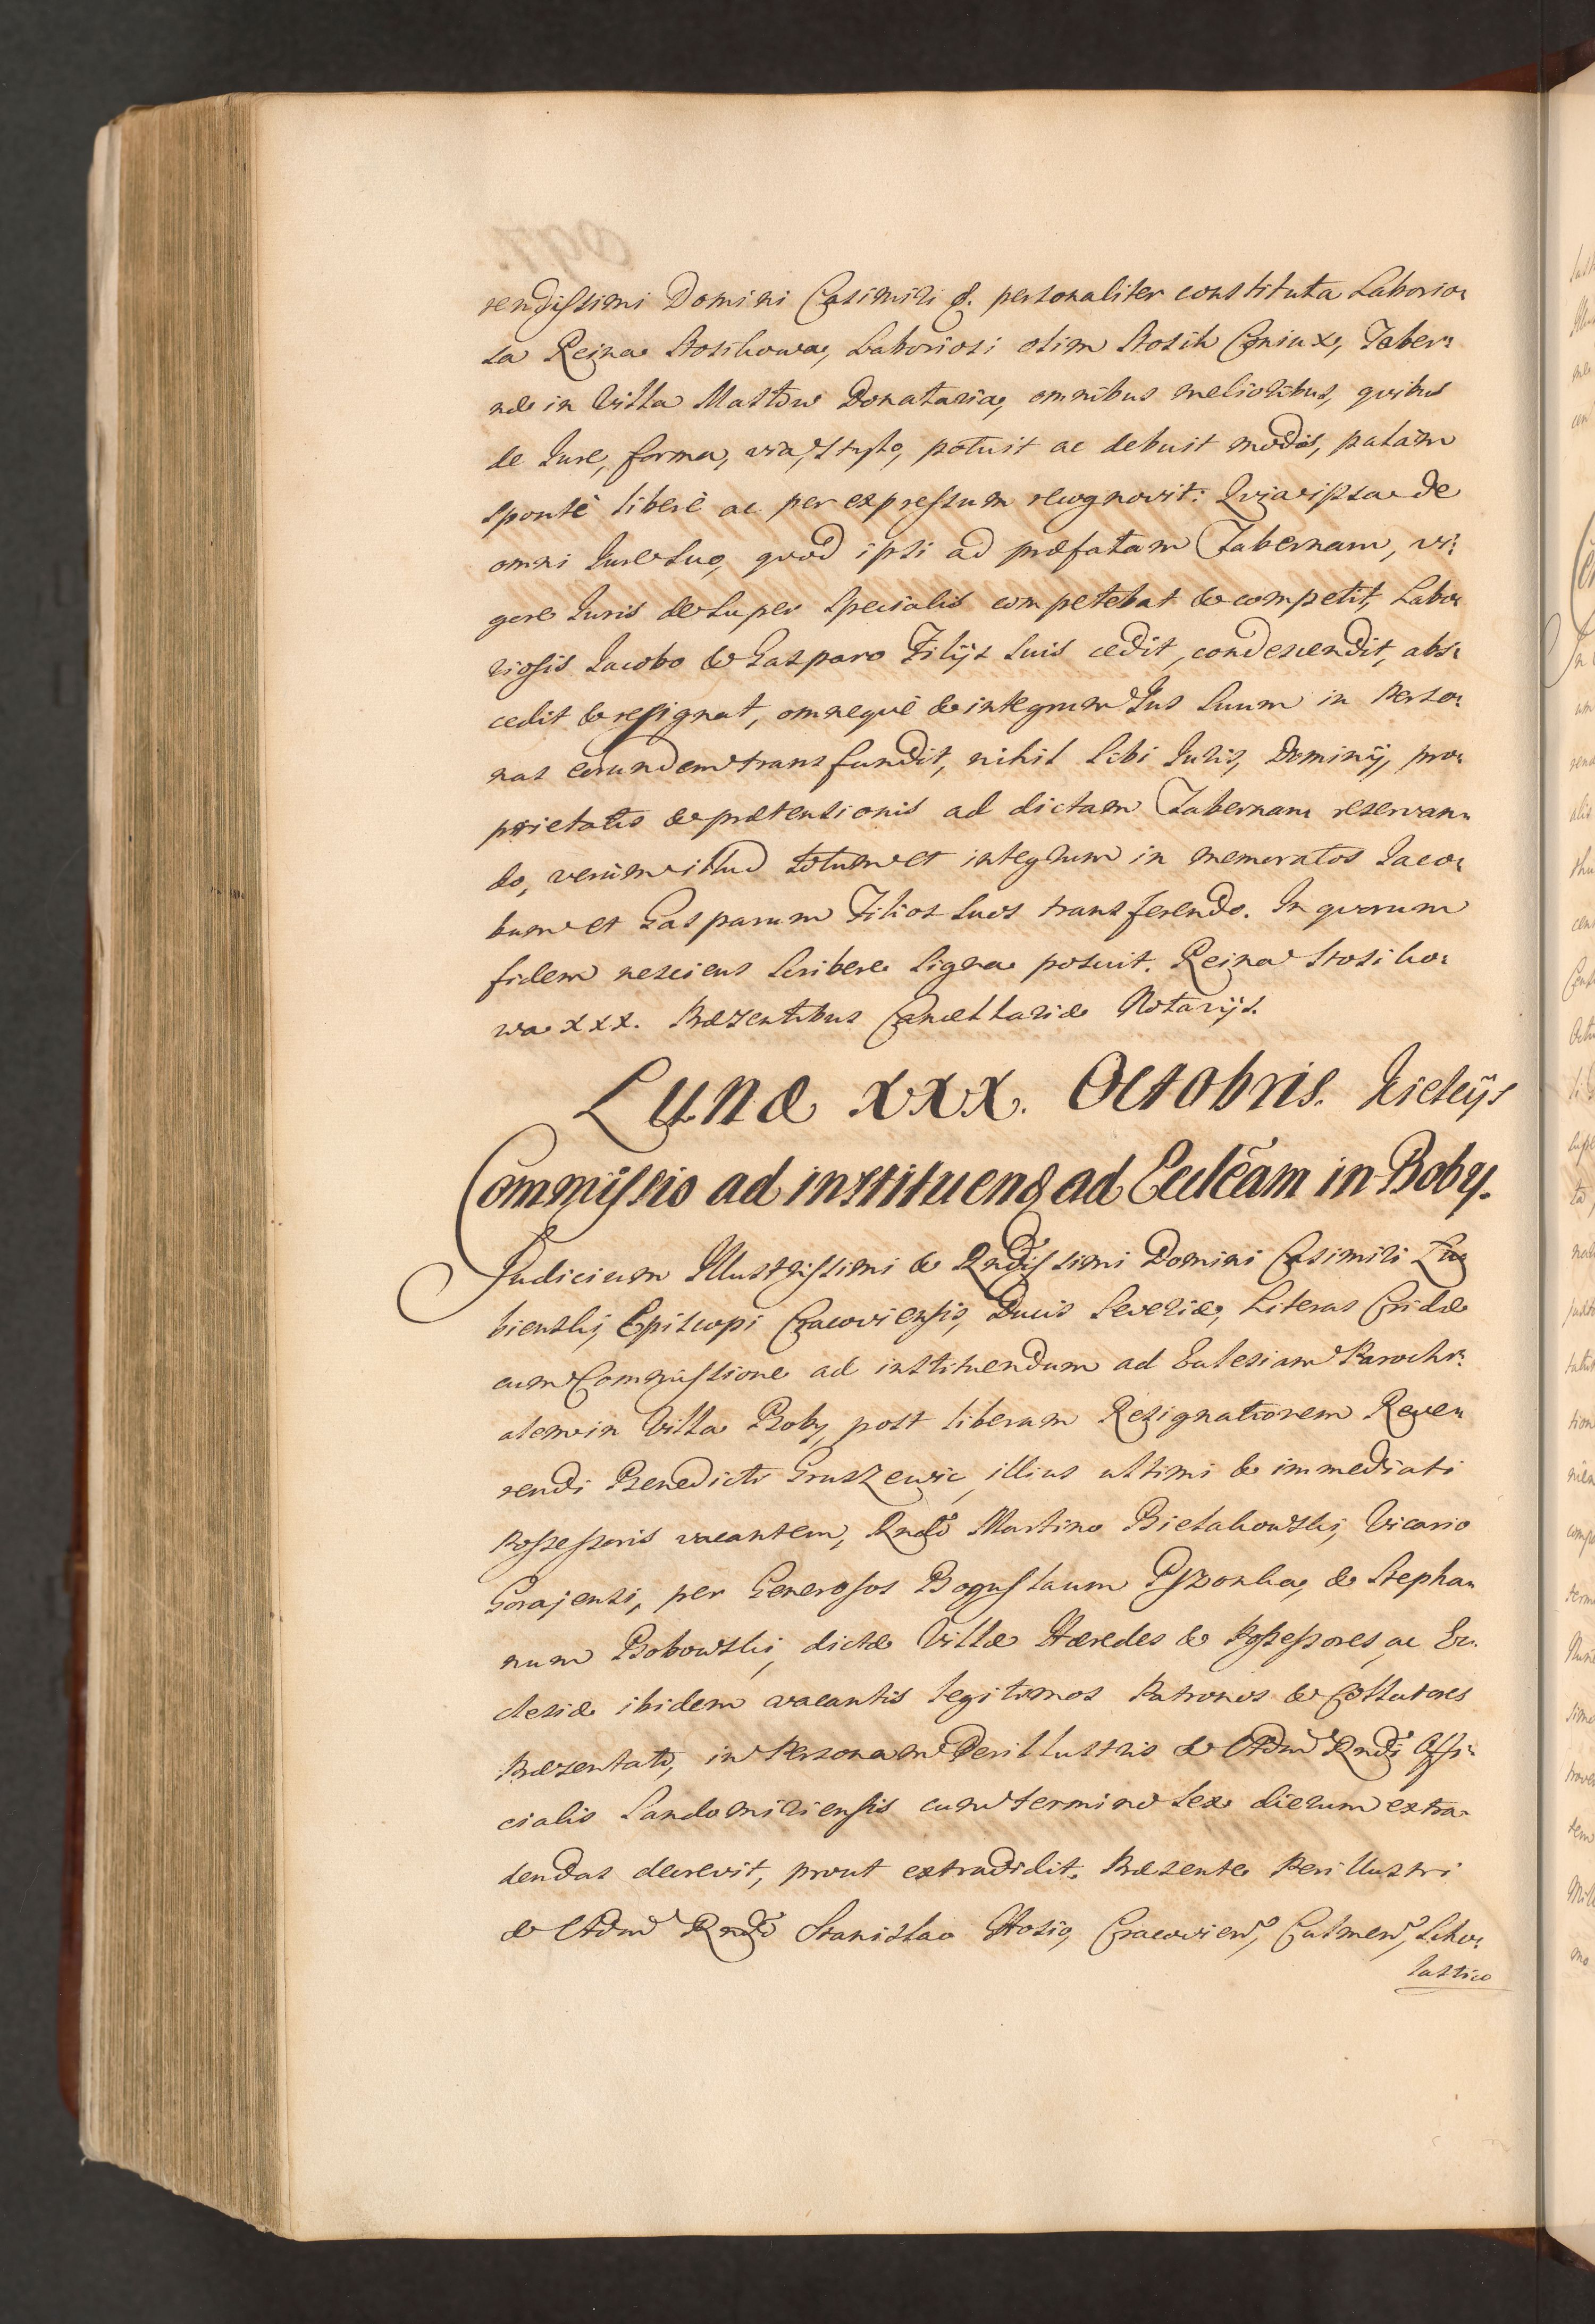 rendissimi Domini Casimiri &. personaliter constituta Laborio:
sa Reina Stosikowa, Laboriosi olim Stosik Coniux, Taber:
næ in Villa Masłow Donataria, omnibus melioribus, quibus
de Jure, forma, via, stylo, potuit ac debuit modis, palàm
spontè liberè ac per expressum recognovit: Quia ipsa de
omni Jure suo, quod ipsi ad præfatam Tabernam, vi:
gore Juris desuper specialis competebat & competit, Labo:
riosis Jacobo & Gasparo Filijs suis cedit, condescendit, abs:
cedit & resignat, omneque & integrum Jus suum in Perso:
nas eorundem transfundit, nihil sibi Juris, Dominij, pro:
prietatis & prætensionis ad dictam Tabernam reservan:
do, verùm illud totum et integrum in memoratos Jaco:
bum et Gasparum Filios suos transferendo. In quorum
fidem nesciens scribere signa posuit. Reina Stosiko:
wa xxx. Præsentibus Cancellariæ Notarijs.
Lunæ xxx. Octobris. Kielcijs
Commissio ad instituend ad Eccleam in Boby.
Judicium Illustrissimi & Rndissimi Domini Casimiri Łu
bienski, Episcopi Cracoviensis, Ducis Severiæ, Literas Cridæ
cum Commissione ad instituendum ad Ecclesiam Parochi:
alem in Villa Boby, post liberam Resignationem Reve:
rendi Benedicti Gruszewic, illius ultimi & immediati
Possessoris vacantem, Rndo Martino Bielakowski, Vicario
Gorajensi, per Generosos Bogusłaum Pszonka, & Stepha:
num Bobowski, dictæ Villæ Hæredes & Possessores, ac Ec:
clesiæ ibidem vacantis legitimos Patronos & Collatores
Præsentato, in Personam Perillustris & Adm Rndi Offi:
cialis Sandomiriensis cum termino sex dierum extra:
dendas decrevit, prout extradidit. Præsente Perillustri
& Adm Rndo Stanislao Hosio, Cracovien, Culmen, Scho:
lastico